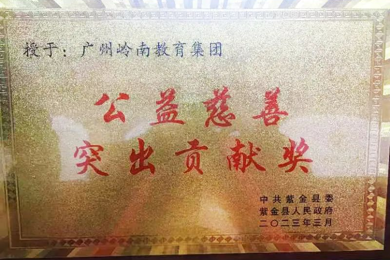 授于：广州岭南教育集团
公益慈善
突出贡献奖
中共紫金县委
紫金县人民政府
二〇二三年三月